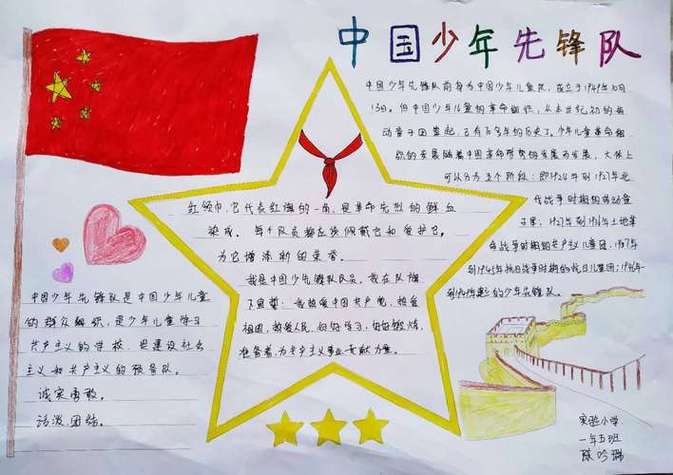 中国少年先锋队
中国少年先锋队前身为中国少年儿童队,成立于1949年10月
13日。但中国少年儿童的革命组织,从本世纪初的劳
动童子团算起,已有百多年的历史了。少年儿童革命组
织的发展随着中国革命形势的发展而发展,大体上
可以分为五个阶段:即1924年到1927年北
伐战争时期的劳动童
子团,1927年到1936年土地革
命战争时期的共产主义儿童团,1937年
到1945年抗日战争时期的抗日儿童团;1946年
的少年先锋队。
红领巾,它代表红旗的一角,是革命先烈的鲜血
染成。每个队员都应该佩戴它和爱护它。
为它增添新的荣誉。
我是中国少年先锋队队员。我在队旗
下宣誓:我热爱中国共产党,热爱
祖国,热爱人民,好好学习,好好锻炼,
准备着,为共产主义事业贡献力量。
中国少年先锋队是中国少年儿童
的群众组织,是少年儿童学习
共产主义的学校,是建设社会
主义和共产主义的预备队。
诚实勇敢。
活泼团结。
实验小学
一年五班
陈吟瑞